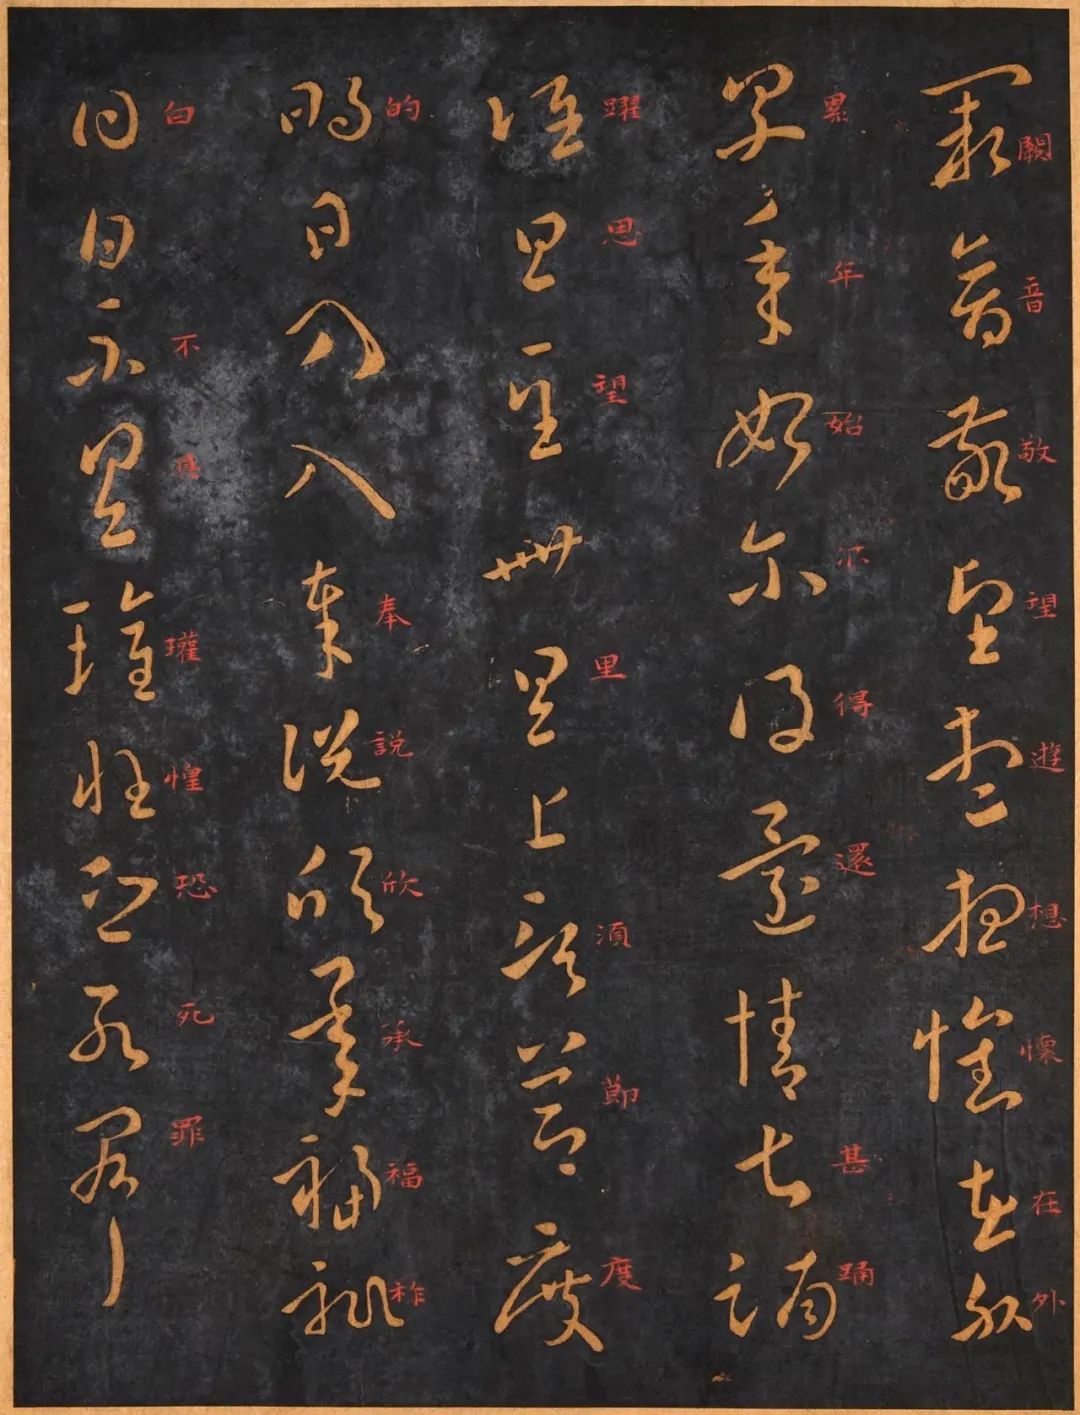 闕音敬望遊想懷在外
累年始尔得還情甚踊
躍思望卅里上須節度
的日乃入奉説欣承福祚
白不具瓘惶恐死罪